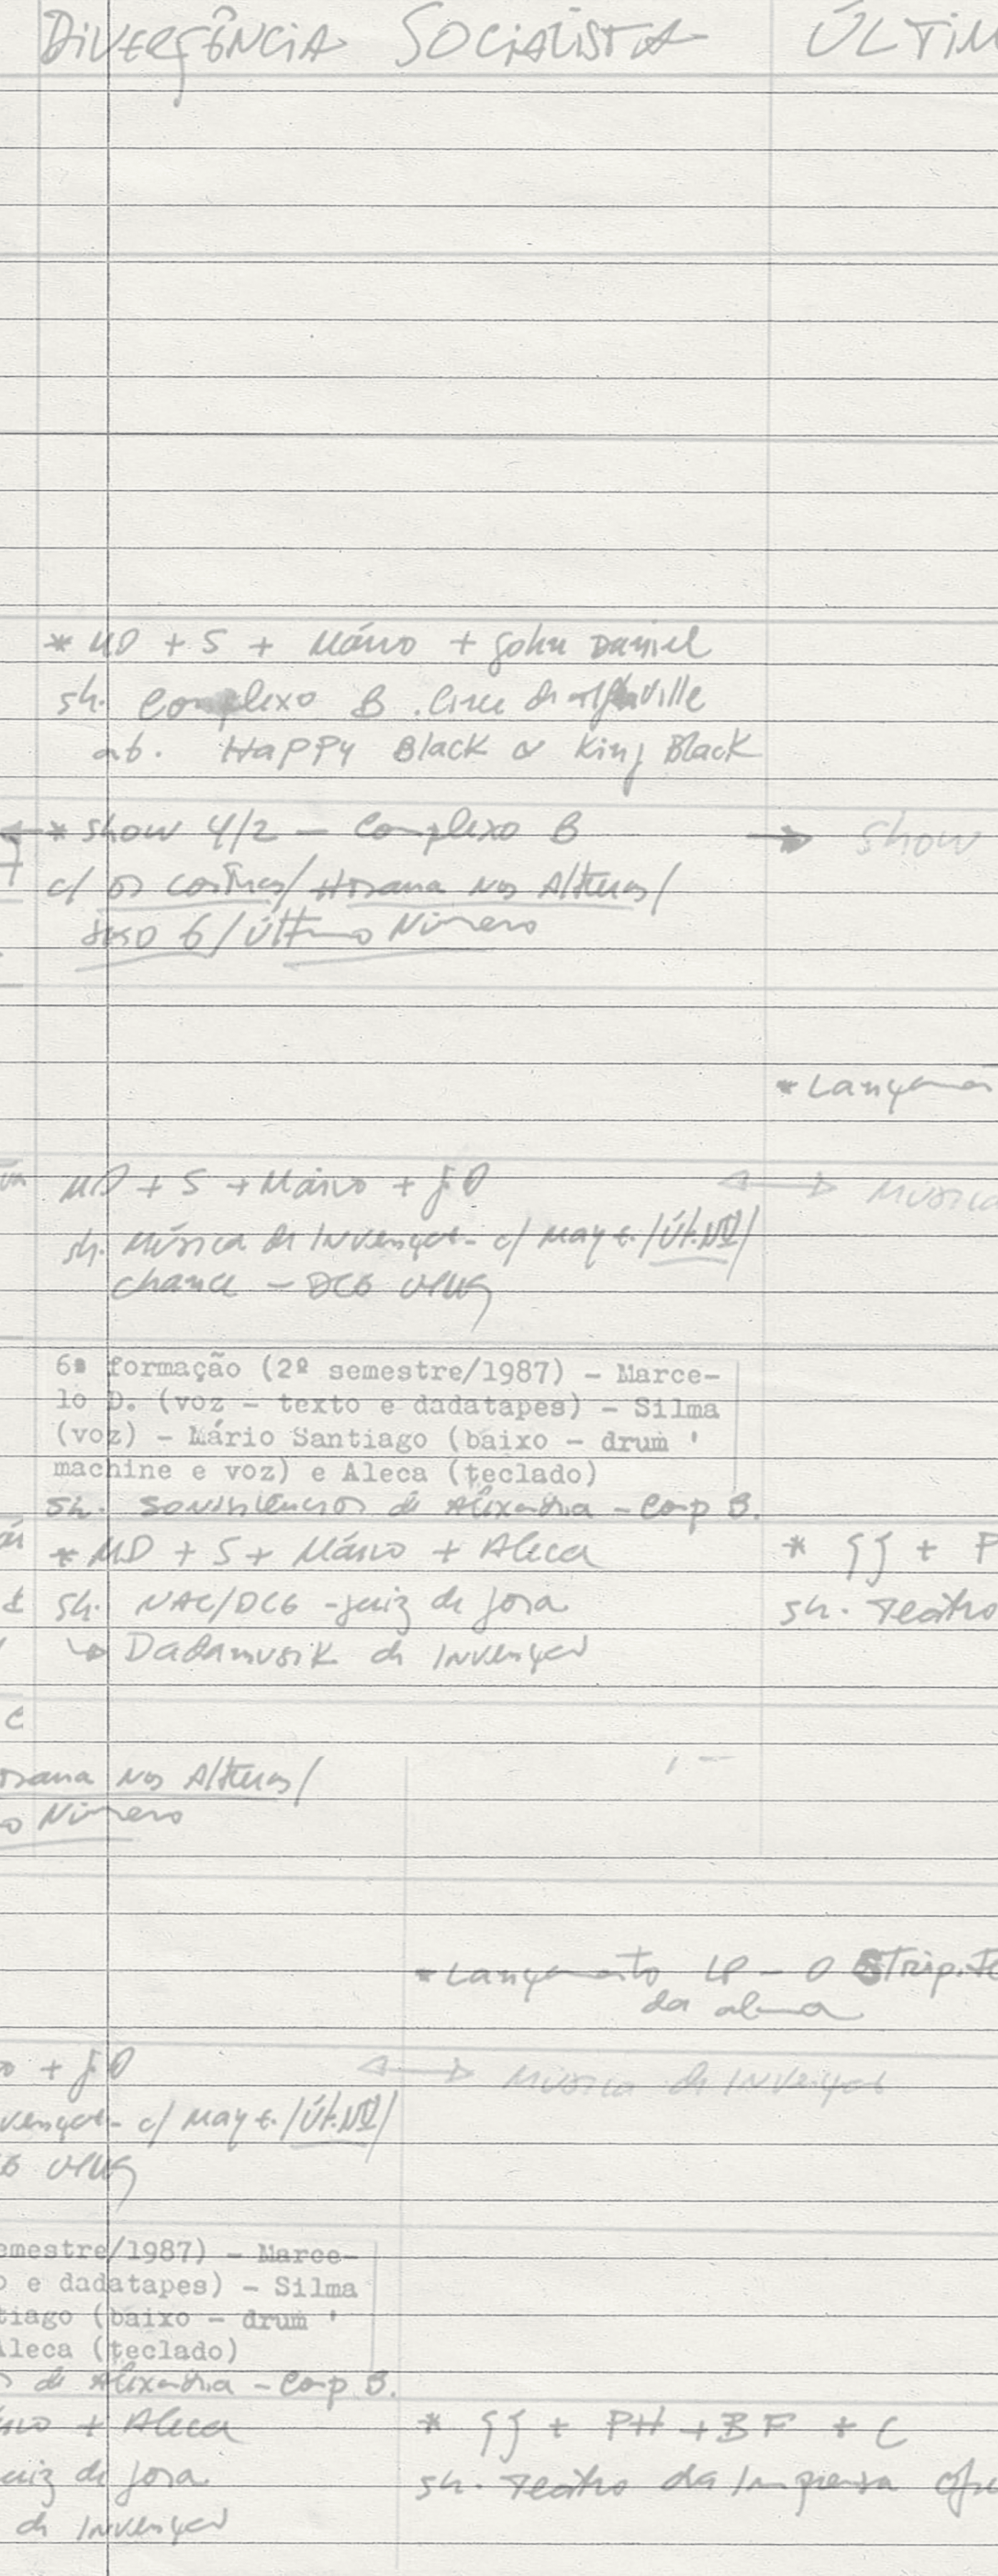 DIVERGÊNCIA SOCIALISTA ÚLTIM
* MD + S + Mário + John Daniel
sh. Complexo B. Cine de Alphaville
ab. Happy Black & King Black
* show 4/2 — Complexo B → show
c/ os contras/Hosana nos Alturas/
6/Último Número
* Lançamen
MD + S + Mário + J.D
↔ Música
sh. Música de Invenção - c/ May E./Últ.Nº/
Chance — DCE UFMG
6ª formação (2º semestre/1987) - Marce-
lo D. (voz - texto e dadatapes) - Silma
(voz) - Mário Santiago (baixo - drum '
machine e voz) e Aleca (teclado)
sh. de Alexandria - Comp B.
* MD + S + Mário + Aleca
* JJ + P
sh. NAC/DCE - juiz de fora
sh. Teatro
↳ Dadamusik de Invenção
c
osana nos Alturas/
o Número
* Lançamento LP - O Strip.Te
da alma
o + J.D
↔ Música de Invenção
venção - c/ May E./Últ.Nº/
UFMG
emestre/1987) - Marce-
o e dadatapes) - Silma
tiago (baixo - drum '
Aleca (teclado)
de Alexandria - Comp B.
ário + Aleca
* JJ + PH + BF + C
uiz de fora
sh. Teatro da Imprensa Ofic
de Invenção